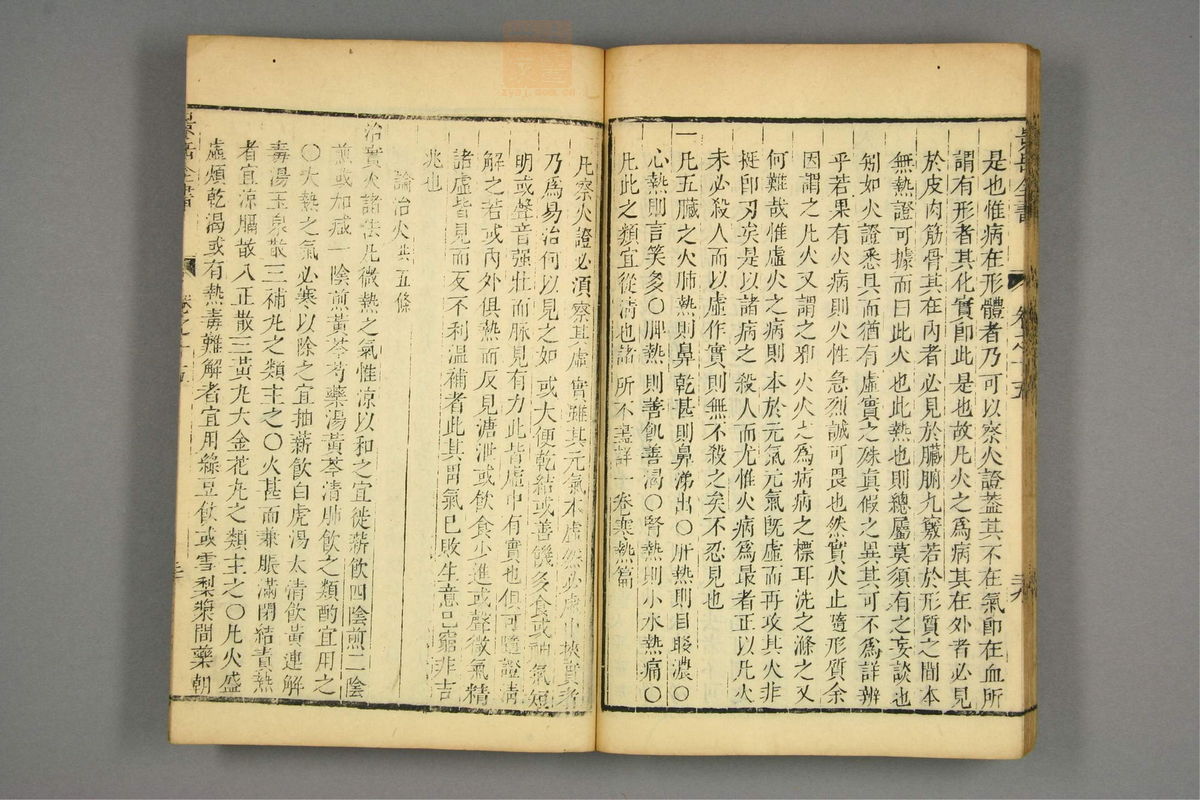 景岳全書 卷之十五
是也惟病在形體者乃可以察火證葢其不在氣卽在血所
謂有形者其化實卽此是也故凡火之爲病其在外者必見
於皮肉筋骨其在內者必見於臟腑九竅若於形質之間本
無熱證可據而曰此火也此熱也則總屬莫須有之妄談也
矧如火證悉具而猶有虛實之殊眞假之異其可不爲詳辨
乎若果有火病則火性急烈誠可畏也然實火止隨形質余
因謂之凡火又謂之邪火火之爲病病之標耳洗之滌之又
何難哉惟虛火之病則本於元氣元氣既虛而再攻其火非
挺卽刃矣是以諸病之殺人而尤惟火病爲最者正以凡火
未必殺人而以虛作實則無不殺之矣不忍見也
一凡五臟之火肺熱則鼻乾甚則鼻涕出○肝熱則目眵濃○
心熱則言笑多○脾熱則善飢善渴○腎熱則小水熱痛○
凡此之類宜從淸也諸所不盡詳一卷寒熱篇
一凡察火證必須察其虛實雖其元氣本虛然必虛中挾實者
乃爲易治何以見之如或大便乾結或善饑多食或神氣短
明或聲音强壯而脉見有力此皆虛中有實也俱可隨證淸
解之若或內外俱熱而反見溏泄或飲食少進或聲微氣精
諸虛皆見而反不利溫補者此其胃氣已敗生意已窮非吉
兆也
論治火共五條
治實火諸法凡微熱之氣惟凉以和之宜徙薪飲四陰煎二陰
煎或加減一陰煎黃芩芍藥湯黃芩清肺飲之類酌宜用之
○大熱之氣必寒以除之宜抽薪飲白虎湯太清飲黃連解
毒湯玉泉散三補丸之類主之○火甚而兼脹滿閉結實熱
者宜凉膈散八正散三黃丸大金花丸之類主之○凡火盛
虛煩乾渴或有熱毒難解者宜用綠豆飲或雪梨漿間藥朝
景岳全書